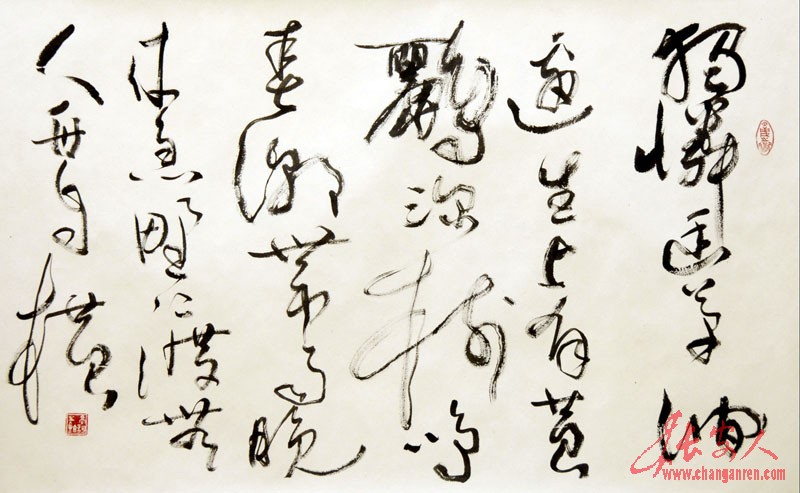 獨憐幽草澗
邊生上有黄
鸝深樹鳴
春潮帶雨晚
来急野渡無
人舟自横
长安人
www.changanren.com